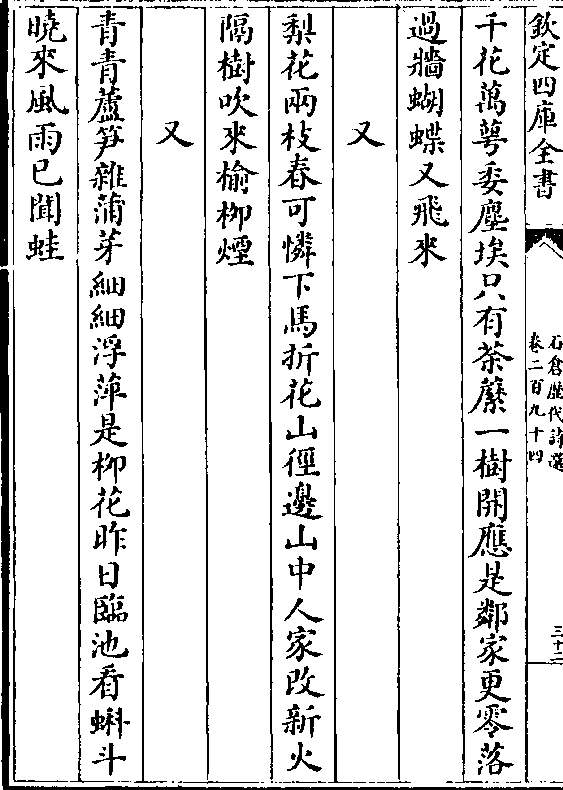 欽定四庫全書
石倉歷代詩選
卷二百九十四
三十二
千花萬萼委塵埃只有荼蘼一樹開應是鄰家更零落
過牆蝴蝶又飛來
又
梨花兩枝春可憐下馬折花山徑邊山中人家改新火
隔樹吹來榆柳煙
又
青青蘆笋雜蒲芽細細浮萍是柳花昨日臨池看蝌斗
曉來風雨已聞蛙